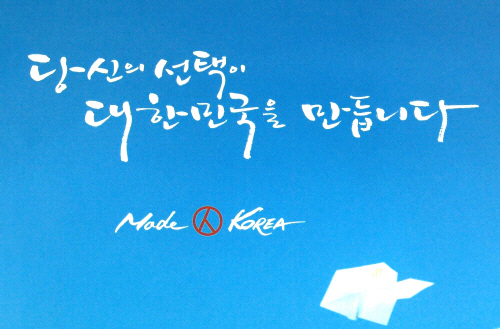 당신의 선택이
대한민국을 만듭니다
Made 人 KOREA